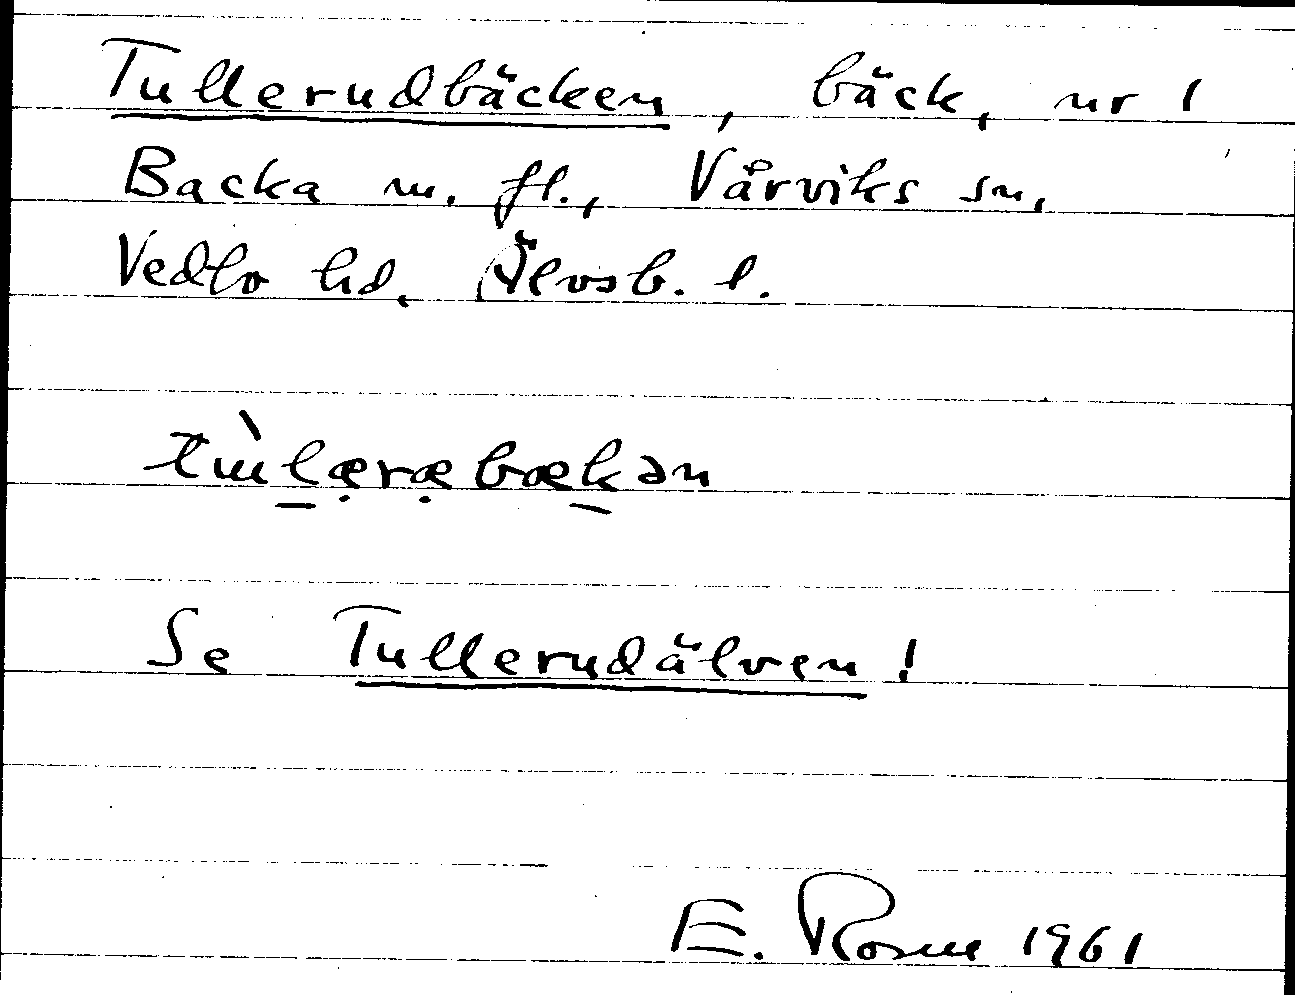 Tullerudbäcken, bäck, nr 1
Backa m. fl., Vårviks sn,
Vedbo hd, Älvsb. l.
Se Tullerudälven!
E. Rosne 1961